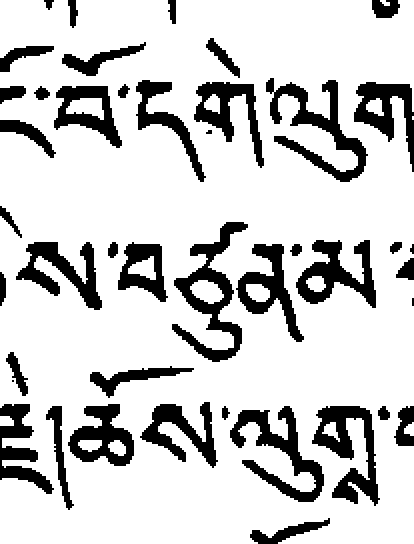 ངོ་བོ་དགེ་ལུག
ས་བཙུན་མ་
ཆོས་ལུགྶ་